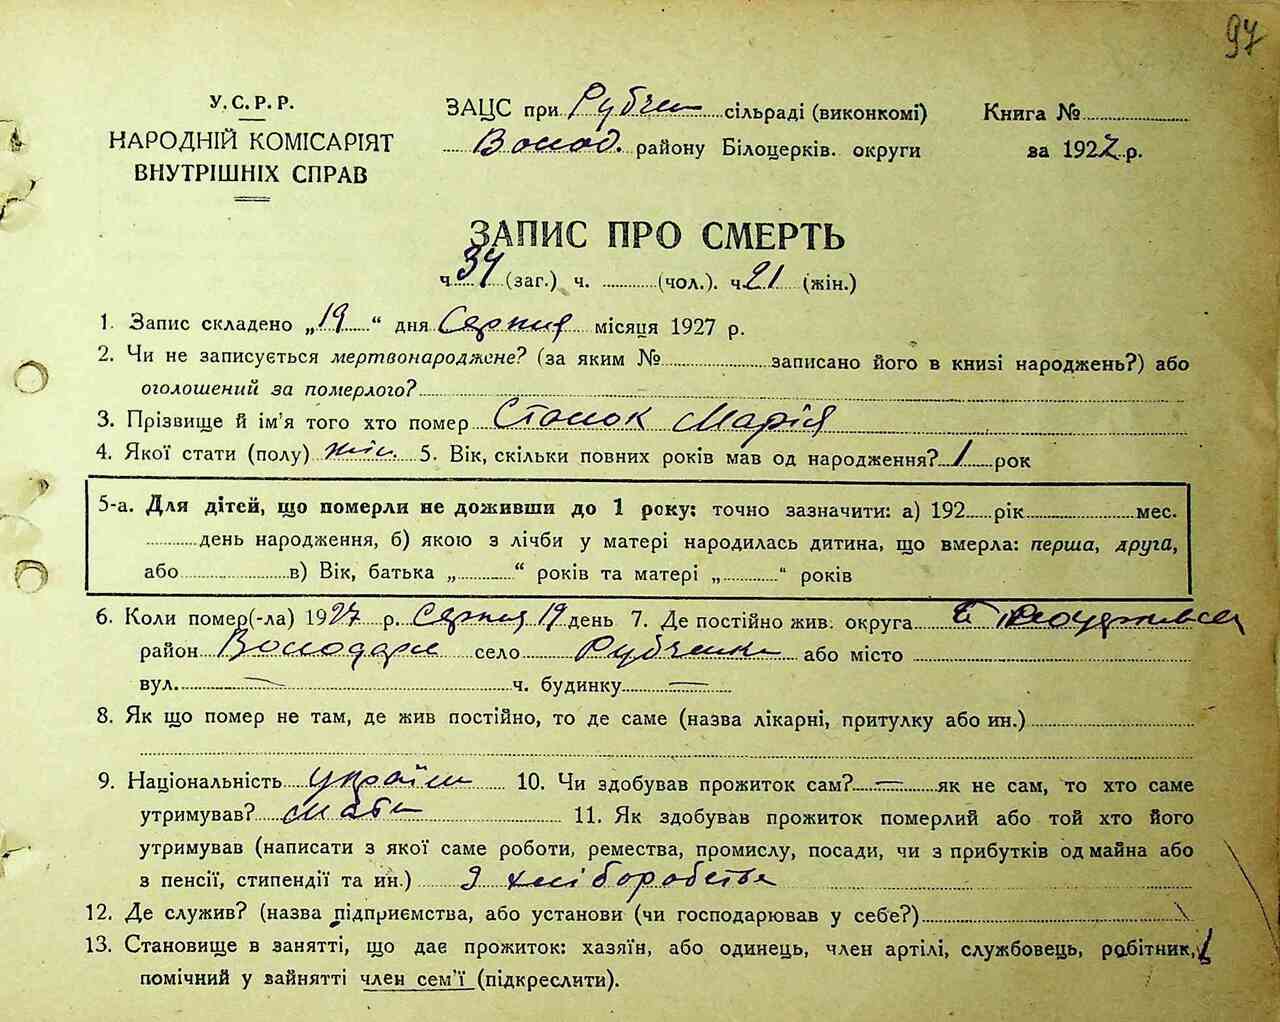 97
У.С.Р.Р.
НАРОДНІЙ КОМІСАРІЯТ
ВНУТРІШНІХ СПРАВ
ЗАЦС при Рубчен сільраді (виконкомі)
Волод. району Білоцерків. округи
Книга №
за 1927 р.
ЗАПИС ПРО СМЕРТЬ
ч 34 (заг.) ч. (чол.). ч 21 (жін.)
1. Запис складено „19“ дня Серпня місяця 1927 р.
2. Чи не записується мертвонароджене? (за яким № записано його в книзі народжень?) або
оголошений за померлого?
3. Прізвище й ім'я того хто помер Столок Марія
4. Якої стати (полу) жін. 5. Вік, скільки повних років мав од народження? 1 рок
5-а. Для дітей, що померли не доживши до 1 року: точно зазначити: а) 192 рік мес.
день народження, б) якою з лічби у матері народилась дитина, що вмерла: перша, друга,
або в) Вік, батька „ “ років та матері „ “ років
6. Коли помер(-ла) 1927 р. Серпня 19 день 7. Де постійно жив: округа
район Володарк село Рубченки або місто
вул. — ч. будинку —
8. Як що помер не там, де жив постійно, то де саме (назва лікарні, притулку або ин.)
9. Національність україн 10. Чи здобував прожиток сам? — як не сам, то хто саме
утримував? мати 11. Як здобував прожиток померлий або той хто його
утримував (написати з якої саме роботи, ремества, промислу, посади, чи з прибутків од майна або
з пенсії, стипендії та ин.) З хліборобства
12. Де служив? (назва підприємства, або установи (чи господарював у себе?)
13. Становище в занятті, що дає прожиток: хазяїн, або одинець, член артілі, службовець, робітник,
помічний у вайнятті член сем'ї (підкреслити).